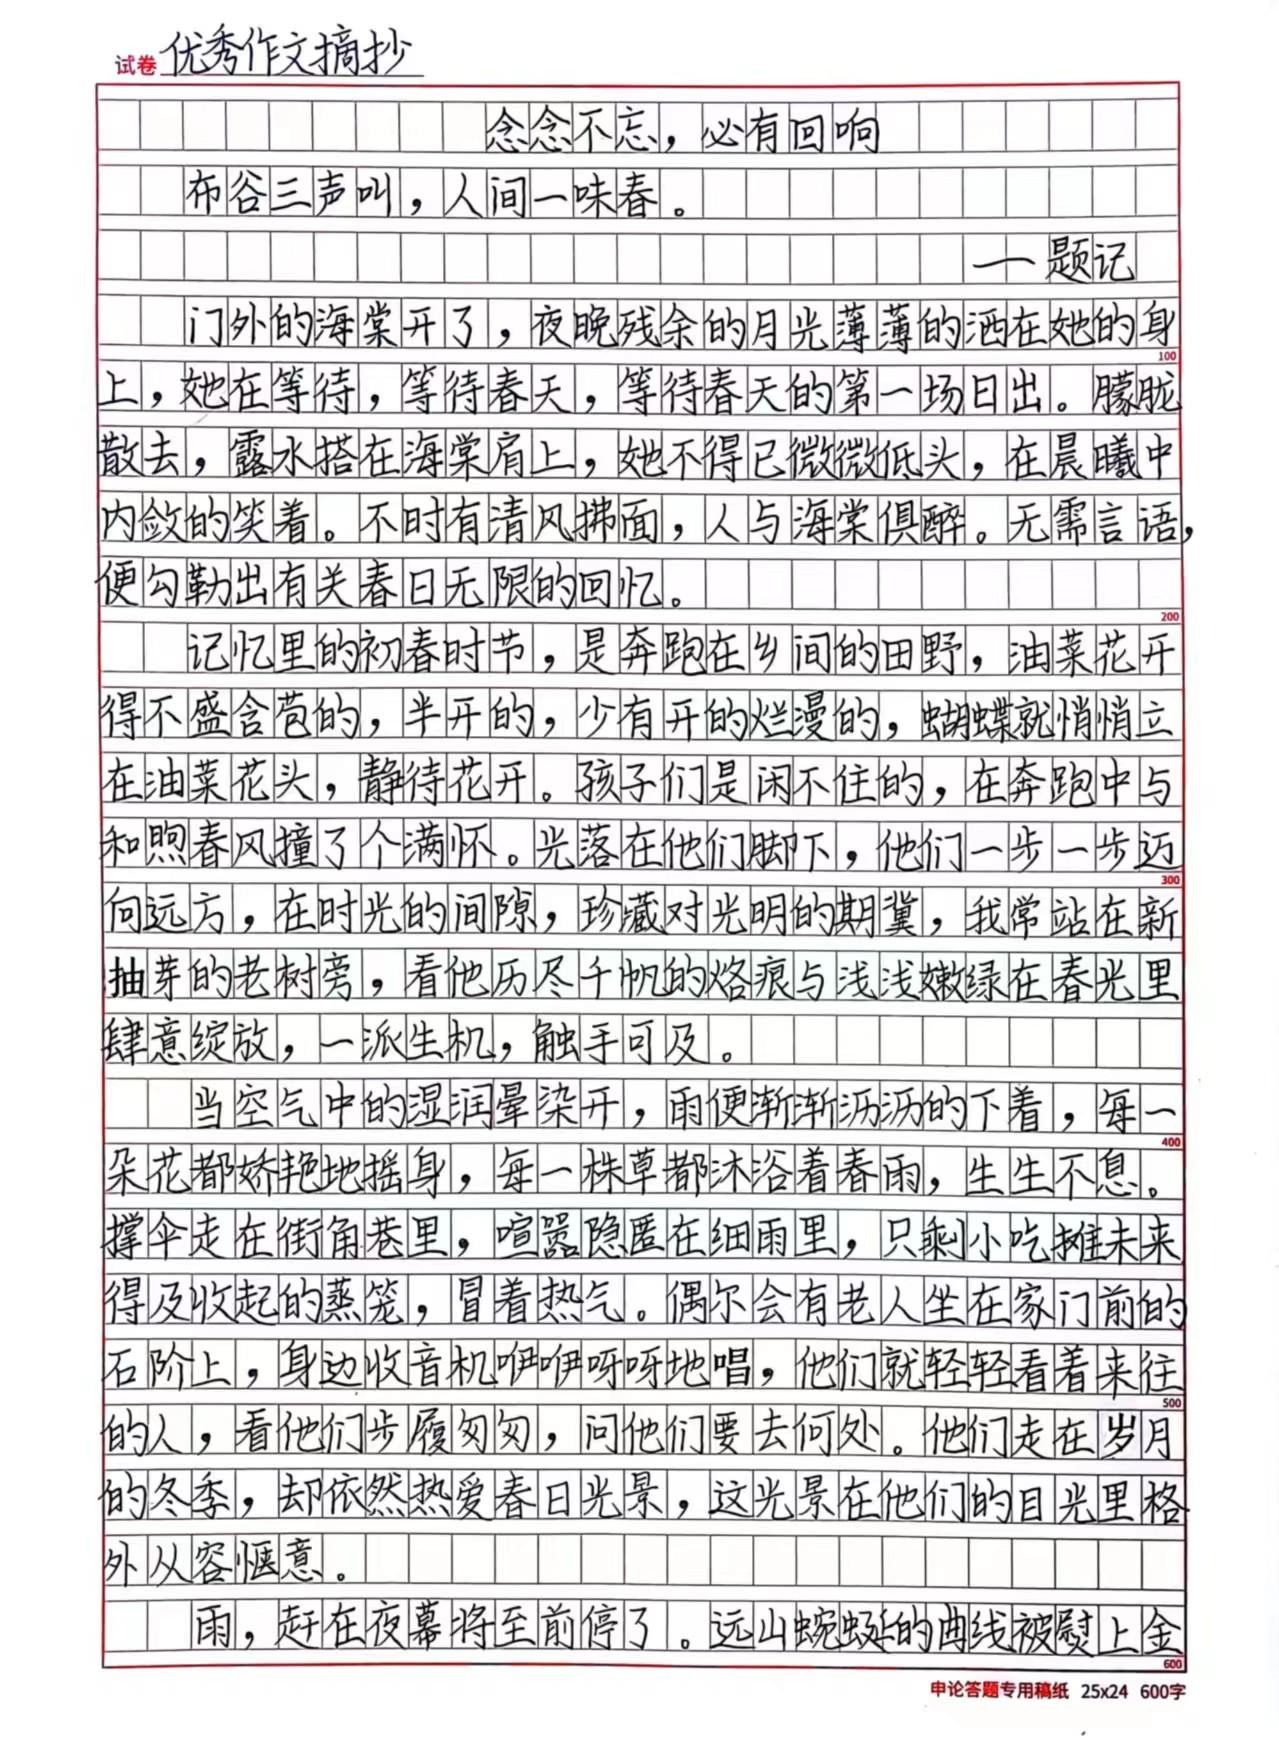 试卷 优秀作文摘抄
念念不忘，必有回响
布谷三声叫，人间一味春。
——题记
门外的海棠开了，夜晚残余的月光薄薄的洒在她的身
100
上，她在等待，等待春天，等待春天的第一场日出。朦胧
散去，露水搭在海棠肩上，她不得已微微低头，在晨曦中
内敛的笑着。不时有清风拂面，人与海棠俱醉。无需言语，
便勾勒出有关春日无限的回忆。
200
记忆里的初春时节，是奔跑在乡间的田野，油菜花开
得不盛含苞的，半开的，少有开的烂漫的，蝴蝶就悄悄立
在油菜花头，静待花开。孩子们是闲不住的，在奔跑中与
和煦春风撞了个满怀。光落在他们脚下，他们一步一步迈
300
向远方，在时光的间隙，珍藏对光明的期冀，我常站在新
抽芽的老树旁，看他历尽千帆的烙痕与浅浅嫩绿在春光里
肆意绽放，一派生机，触手可及。
当空气中的湿润晕染开，雨便渐渐沥沥的下着，每一
400
朵花都娇艳地摇身，每一株草都沐浴着春雨，生生不息。
撑伞走在街角巷里，喧嚣隐匿在细雨里，只剩小吃摊未来
得及收起的蒸笼，冒着热气。偶尔会有老人坐在家门前的
石阶上，身边收音机咿咿呀呀地唱，他们就轻轻看着来往
500
的人，看他们步履匆匆，问他们要去何处。他们走在岁月
的冬季，却依然热爱春日光景，这光景在他们的目光里格
外从容惬意。
雨，赶在夜幕将至前停了。远山蜿蜒的曲线被熨上金
600
申论答题专用稿纸 25x24 600字